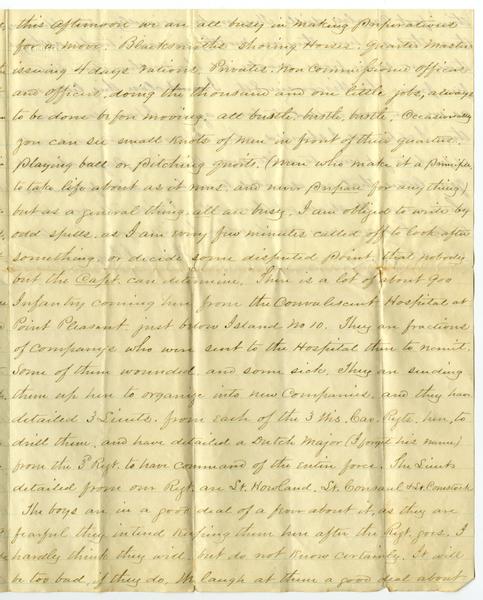 this afternoon we are all busy in making preparations
for a move. Blacksmiths shoeing Horses. Quarter Master
issuing 4 days rations, Privates, Non Commissioned Officers
and Officers, doing the thousand and one little jobs, always
to be done before moving. all bustle, bustle, bustle. Occasionally
you can see small knots of men in front of their quarters
Playing ball or pitching quoits. (Men who make it a principle
to take life about as it runs and never prepare for anything)
but as a general thing all are busy. I am obliged to write by
odd spells, as I am every few minutes called off to look after
something, or decide some disputed point, that nobody
but the Capt. can determine. There is a lot of about 900
Infantry coming here from the Convalescent Hospital at
Point Pleasent. just below Island No 10. They are fractions
of Companys who were sent to the Hospital there to recruit.
Some of them wounded, and some sick. They are sending
them up here to organize into new Companies, and they have
detailed 3 Lieuts. from each of the 3 Cav. Regts. here, to
drill them, and have detailed a Dutch Major (I forget his name)
from the 3d Regt. to have command of the entire force. The Lieuts
detailed from our Regt. are Lt. Howland, Lt. Consaul & Lt. Comstock
The boys are in a good deal of a about it, as they are
fearful they intend keeping them here after the Regt. goes. I
hardly think they will. but do not know certainly. It will
be too bad, if they do, We laugh at them a good deal about